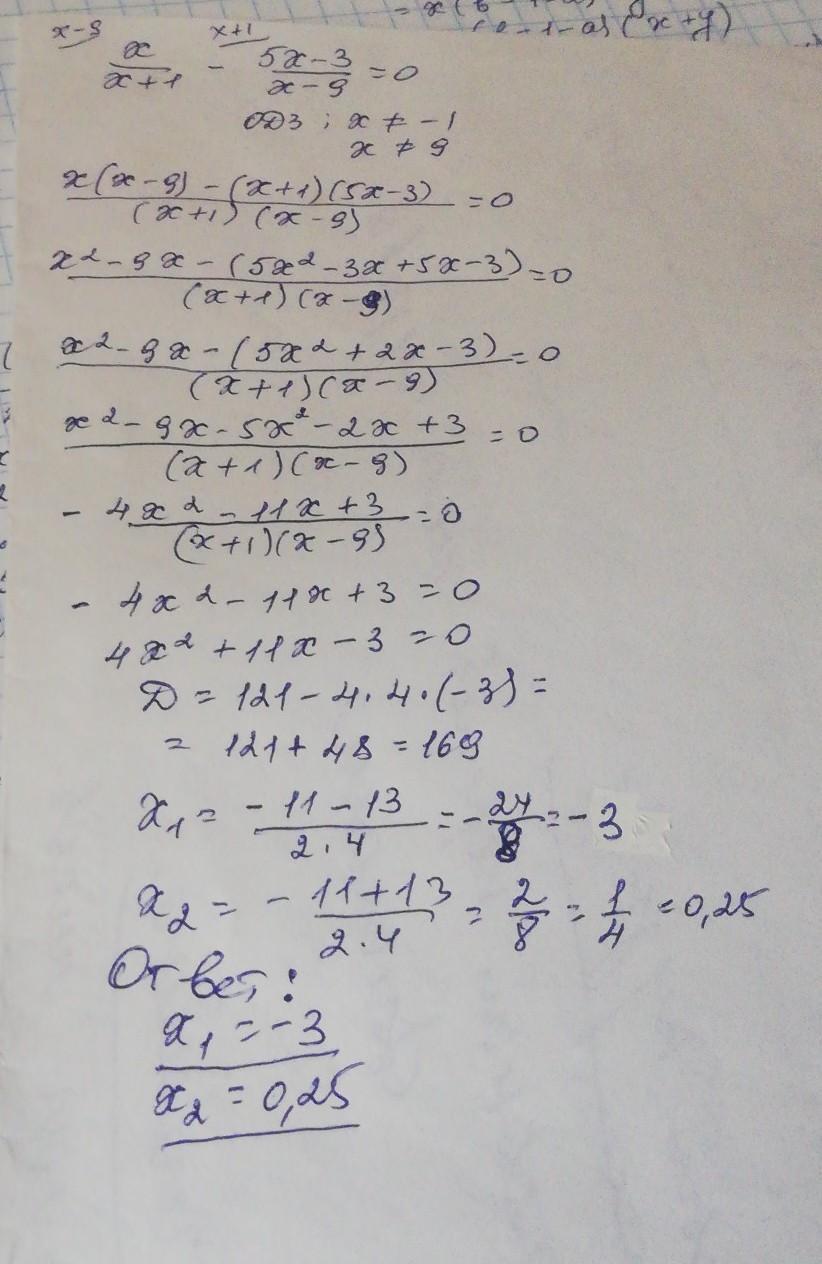 x-9 x+1
x/(x+1) - (5x-3)/(x-9) = 0
ОДЗ: x ≠ -1
x ≠ 9
(x(x-9)-(x+1)(5x-3))/((x+1)(x-9)) = 0
(x²-9x-(5x²-3x+5x-3))/((x+1)(x-9)) = 0
(x²-9x-(5x²+2x-3))/((x+1)(x-9)) = 0
(x²-9x-5x²-2x+3)/((x+1)(x-9)) = 0
(-4x²-11x+3)/((x+1)(x-9)) = 0
-4x²-11x+3=0
4x²+11x-3=0
Д = 121-4·4·(-3) =
= 121+48=169
x₁ = (-11-13)/(2·4) = -24/8 = -3
x₂ = (-11+13)/(2·4) = 2/8 = 1/4 = 0,25
Ответ:
x₁ = -3
x₂ = 0,25